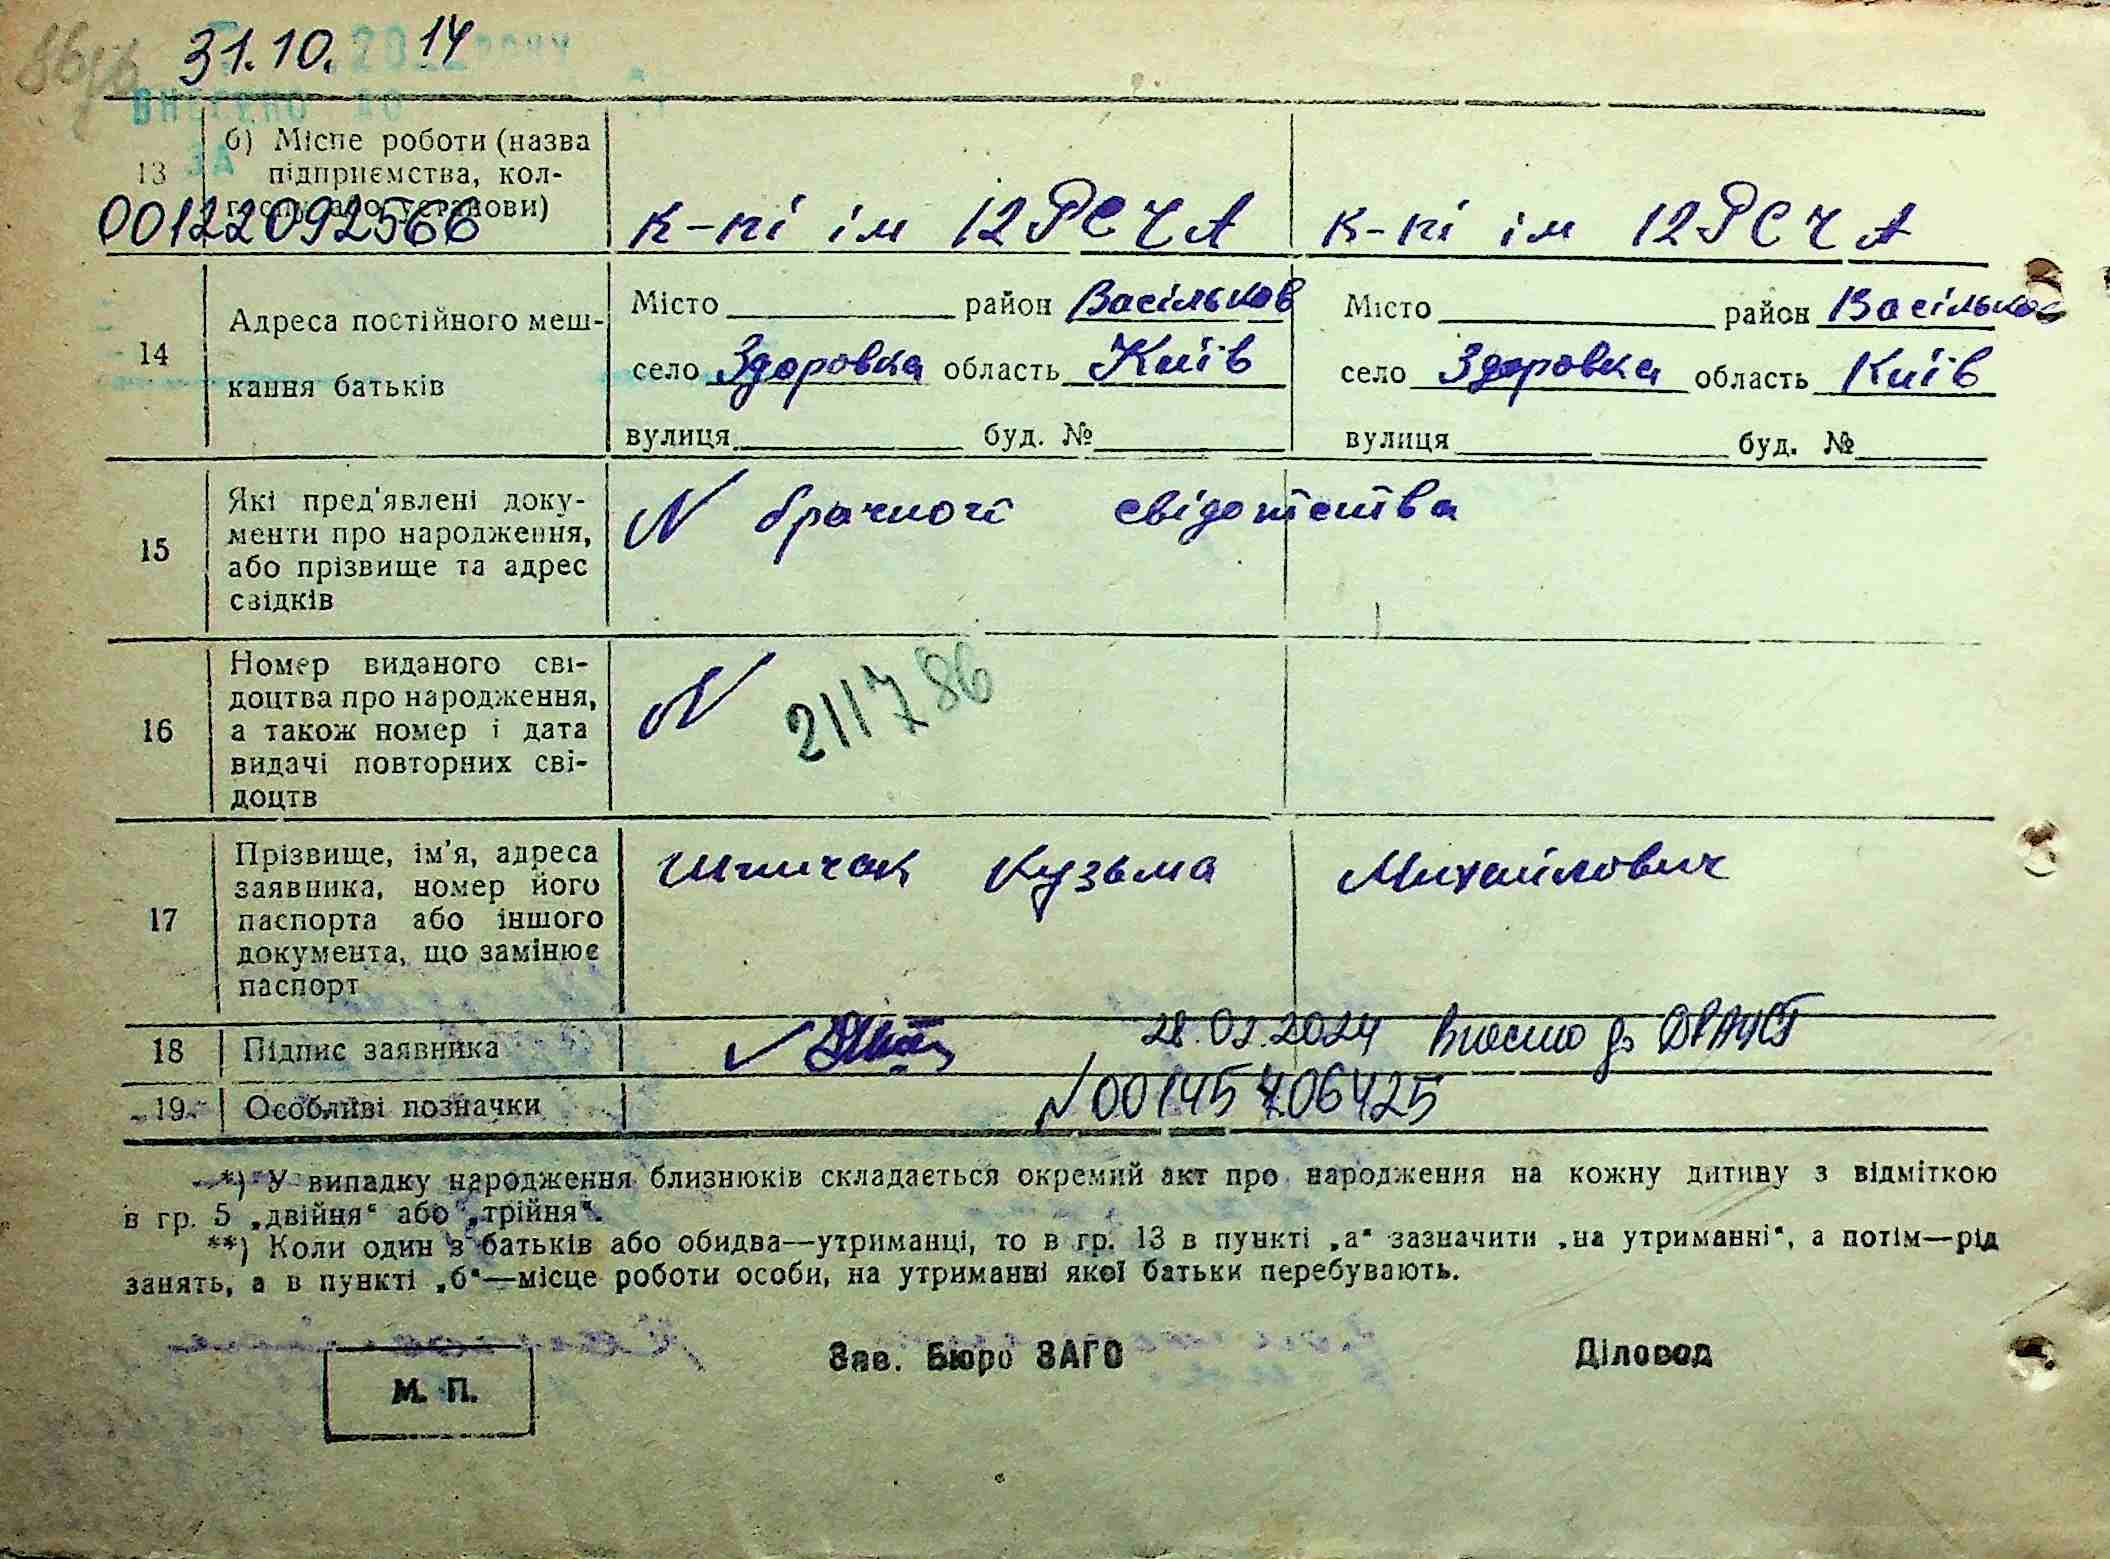 31.10. 14
2022 року
ВНЕСЕНО ДО
13 б) Місце роботи (назва підприємства, кол-
госпу або установи)
00122092566
к-пі ім 12 РСЧА к-пі ім 12 РСЧА
14 Адреса постійного меш-
кання батьків
Місто район Васільков Місто район Васільков
село Здоровка область Київ село Здоровка область Київ
вулиця буд. № вулиця буд. №
15 Які пред'явлені доку-
менти про народження,
або прізвище та адрес
свідків
N брачного свідотства
16 Номер виданого сві-
доцтва про народження,
а також номер і дата
видачі повторних сві-
доцтв
N 211786
17 Прізвище, ім'я, адреса
заявника, номер його
паспорта або іншого
документа, що замінює
паспорт
Кузьма Михайлович
18 Підпис заявника
28.02.2024 Внесено до ДРАЦСГ
19 Особливі позначки
N00145706425
*) У випадку народження близнюків складається окремий акт про народження на кожну дитину з відміткою
в гр. 5 „двійня“ або „трійня“.
**) Коли один з батьків або обидва—утриманці, то в гр. 13 в пункті „а“ зазначити „на утриманні“, а потім—рід
занять, а в пункті „б“—місце роботи особи, на утриманні якої батьки перебувають.
М. П.
Зав. Бюро ЗАГС
Діловод